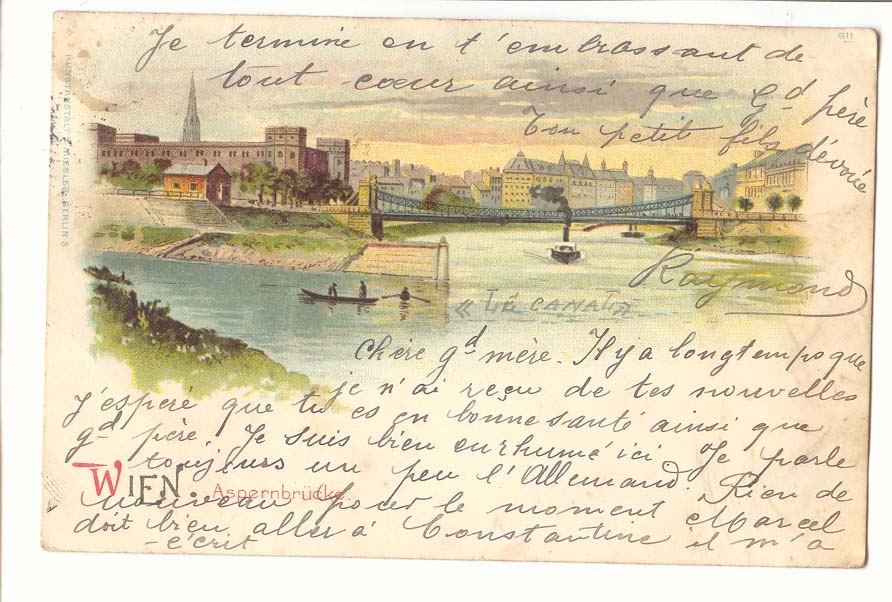 Chère gd mère. Il y a longtemps que
je n'ai reçu de tes nouvelles
J'espère que tu es en bonne santé ainsi que
gd père. Je suis bien enrhumé ici Je parle
toujours un peu l'Allemand. Rien de
nouveau pour le moment Marcel
doit bien aller à Constantine il m'a
écrit
Je termine en t'embrassant de
tout coeur ainsi que Gd père
Ton petit fils dévoué
Raymond
« LE CANAL »
WIEN. Aspernbrücke.
KUNSTANSTALT J. MIESLER, BERLIN S.
G11